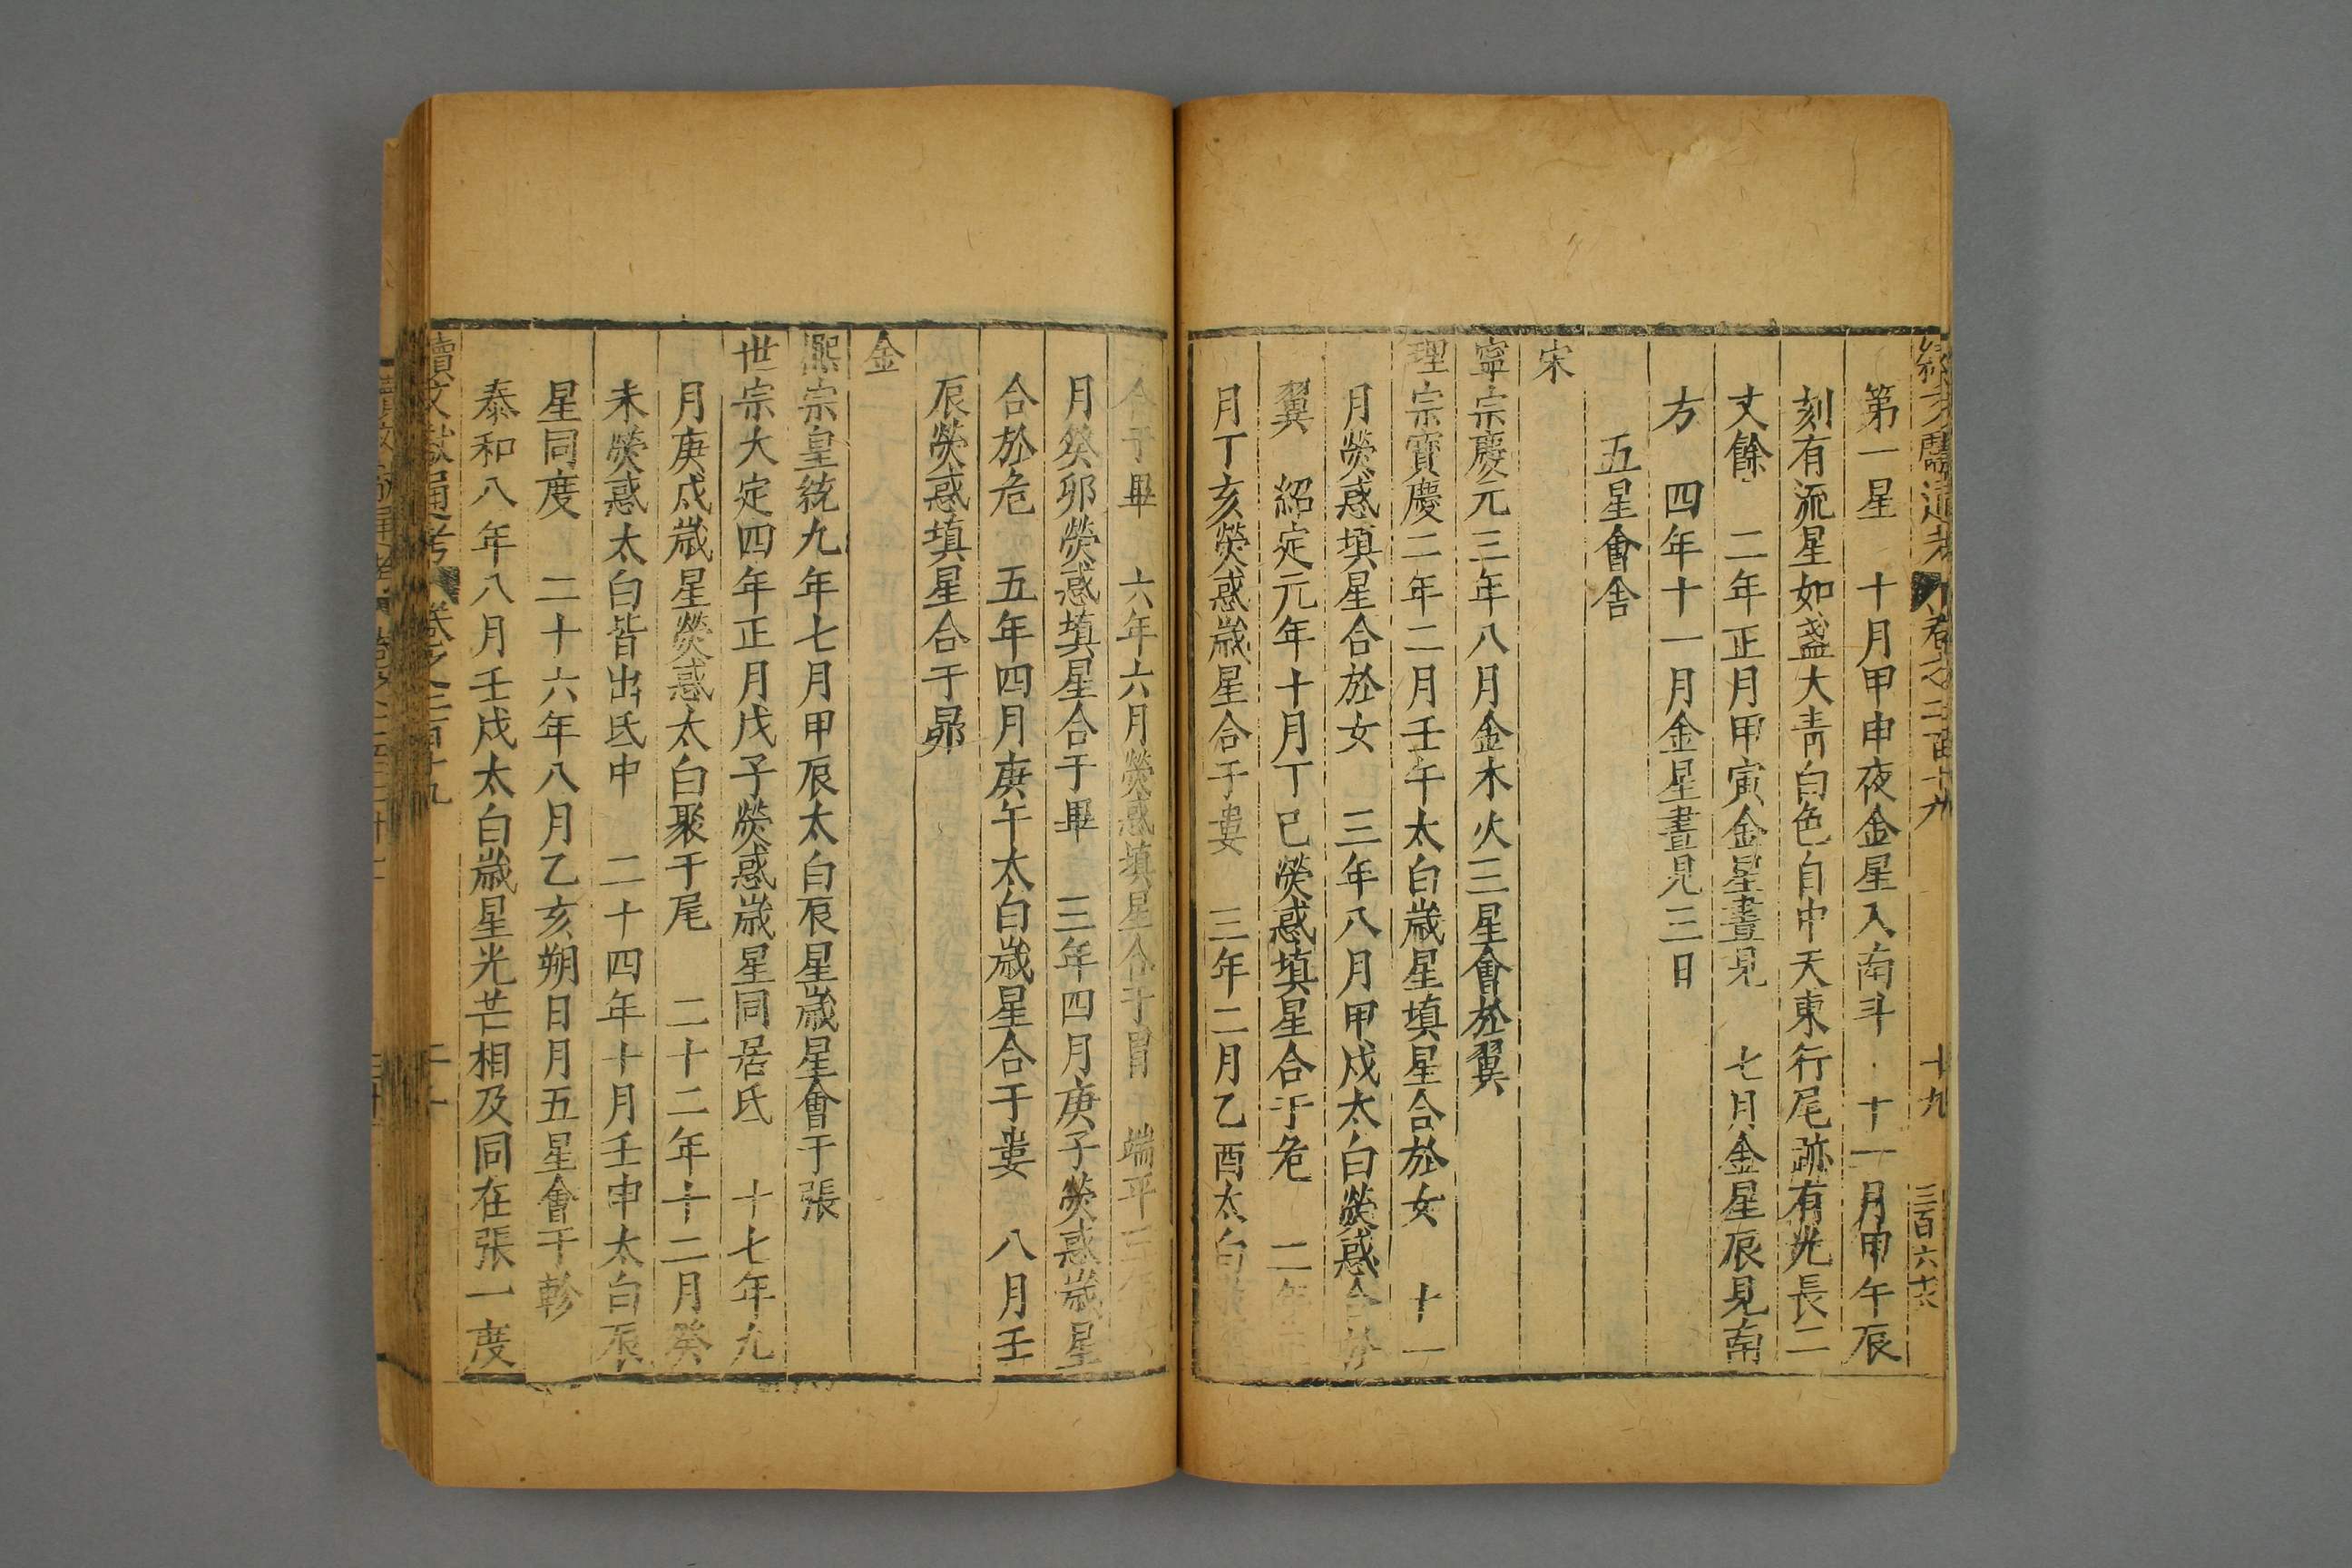 續文獻通考 卷之二百十九 十九 三百六十六
第一星 十月甲申夜金星入南斗 十一月甲午辰
刻有流星如盞大青白色自中天東行尾跡有光長二
丈餘 二年正月甲寅金星晝見 七月金星辰見南
方 四年十一月金星晝見三日
五星會舍
宋
寧宗慶元三年八月金木火三星會於翼
理宗寶慶二年二月壬午太白歲星填星合於女 十一
月熒惑填星合於女 三年八月甲戌太白熒惑合於
翼 紹定元年十月丁巳熒惑填星合于危 二年
月丁亥熒惑歲星合于婁 三年二月乙酉太白
合于畢 六年六月熒惑填星合于胃 端平三年
月癸卯熒惑填星合于畢 三年四月庚子熒惑歲星
合於危 五年四月庚午太白歲星合于婁 八月壬
辰熒惑填星合于昴
金
熙宗皇統九年七月甲辰太白辰星歲星會于張
世宗大定四年正月戊子熒惑歲星同居氐 十七年九
月庚戌歲星熒惑太白聚于尾 二十二年十二月癸
未熒惑太白皆出氐中 二十四年十月壬申太白辰
星同度 二十六年八月乙亥朔日月五星會于軫
泰和八年八月壬戌太白歲星光芒相及同在張一度
續文獻通考 卷之二百十九